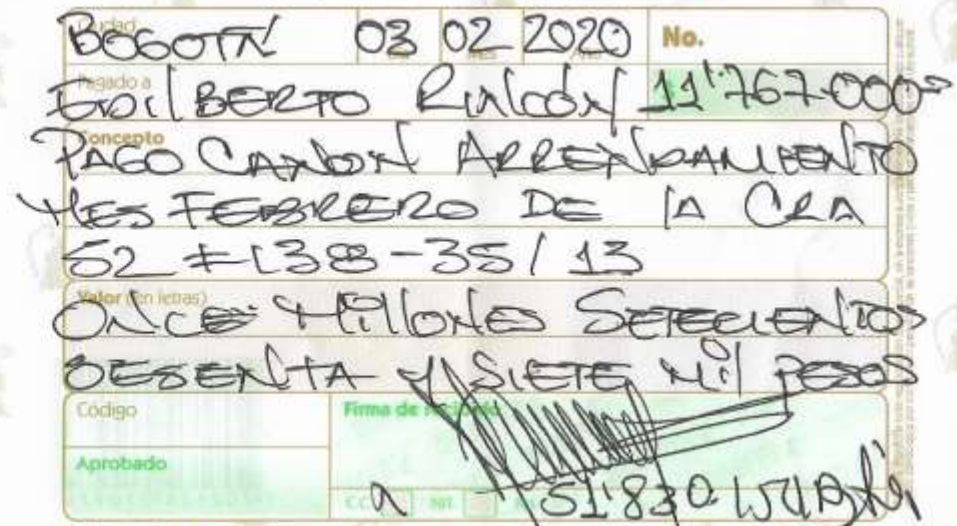 Ciudad
BOGOTA 03 02 2020 No.
Pagado a
GILBERTO RINCÓN 11'767.000
Concepto
PAGO CANON ARRENDAMIENTO
MES FEBRERO DE LA CRA
52 #138-35/13
Valor (en letras)
ONCE MILLONES SETECIENTOS
SESENTA Y SIETE MIL PESOS
Código
Firma de recibido
Aprobado
C.C. NIT.
51'830.